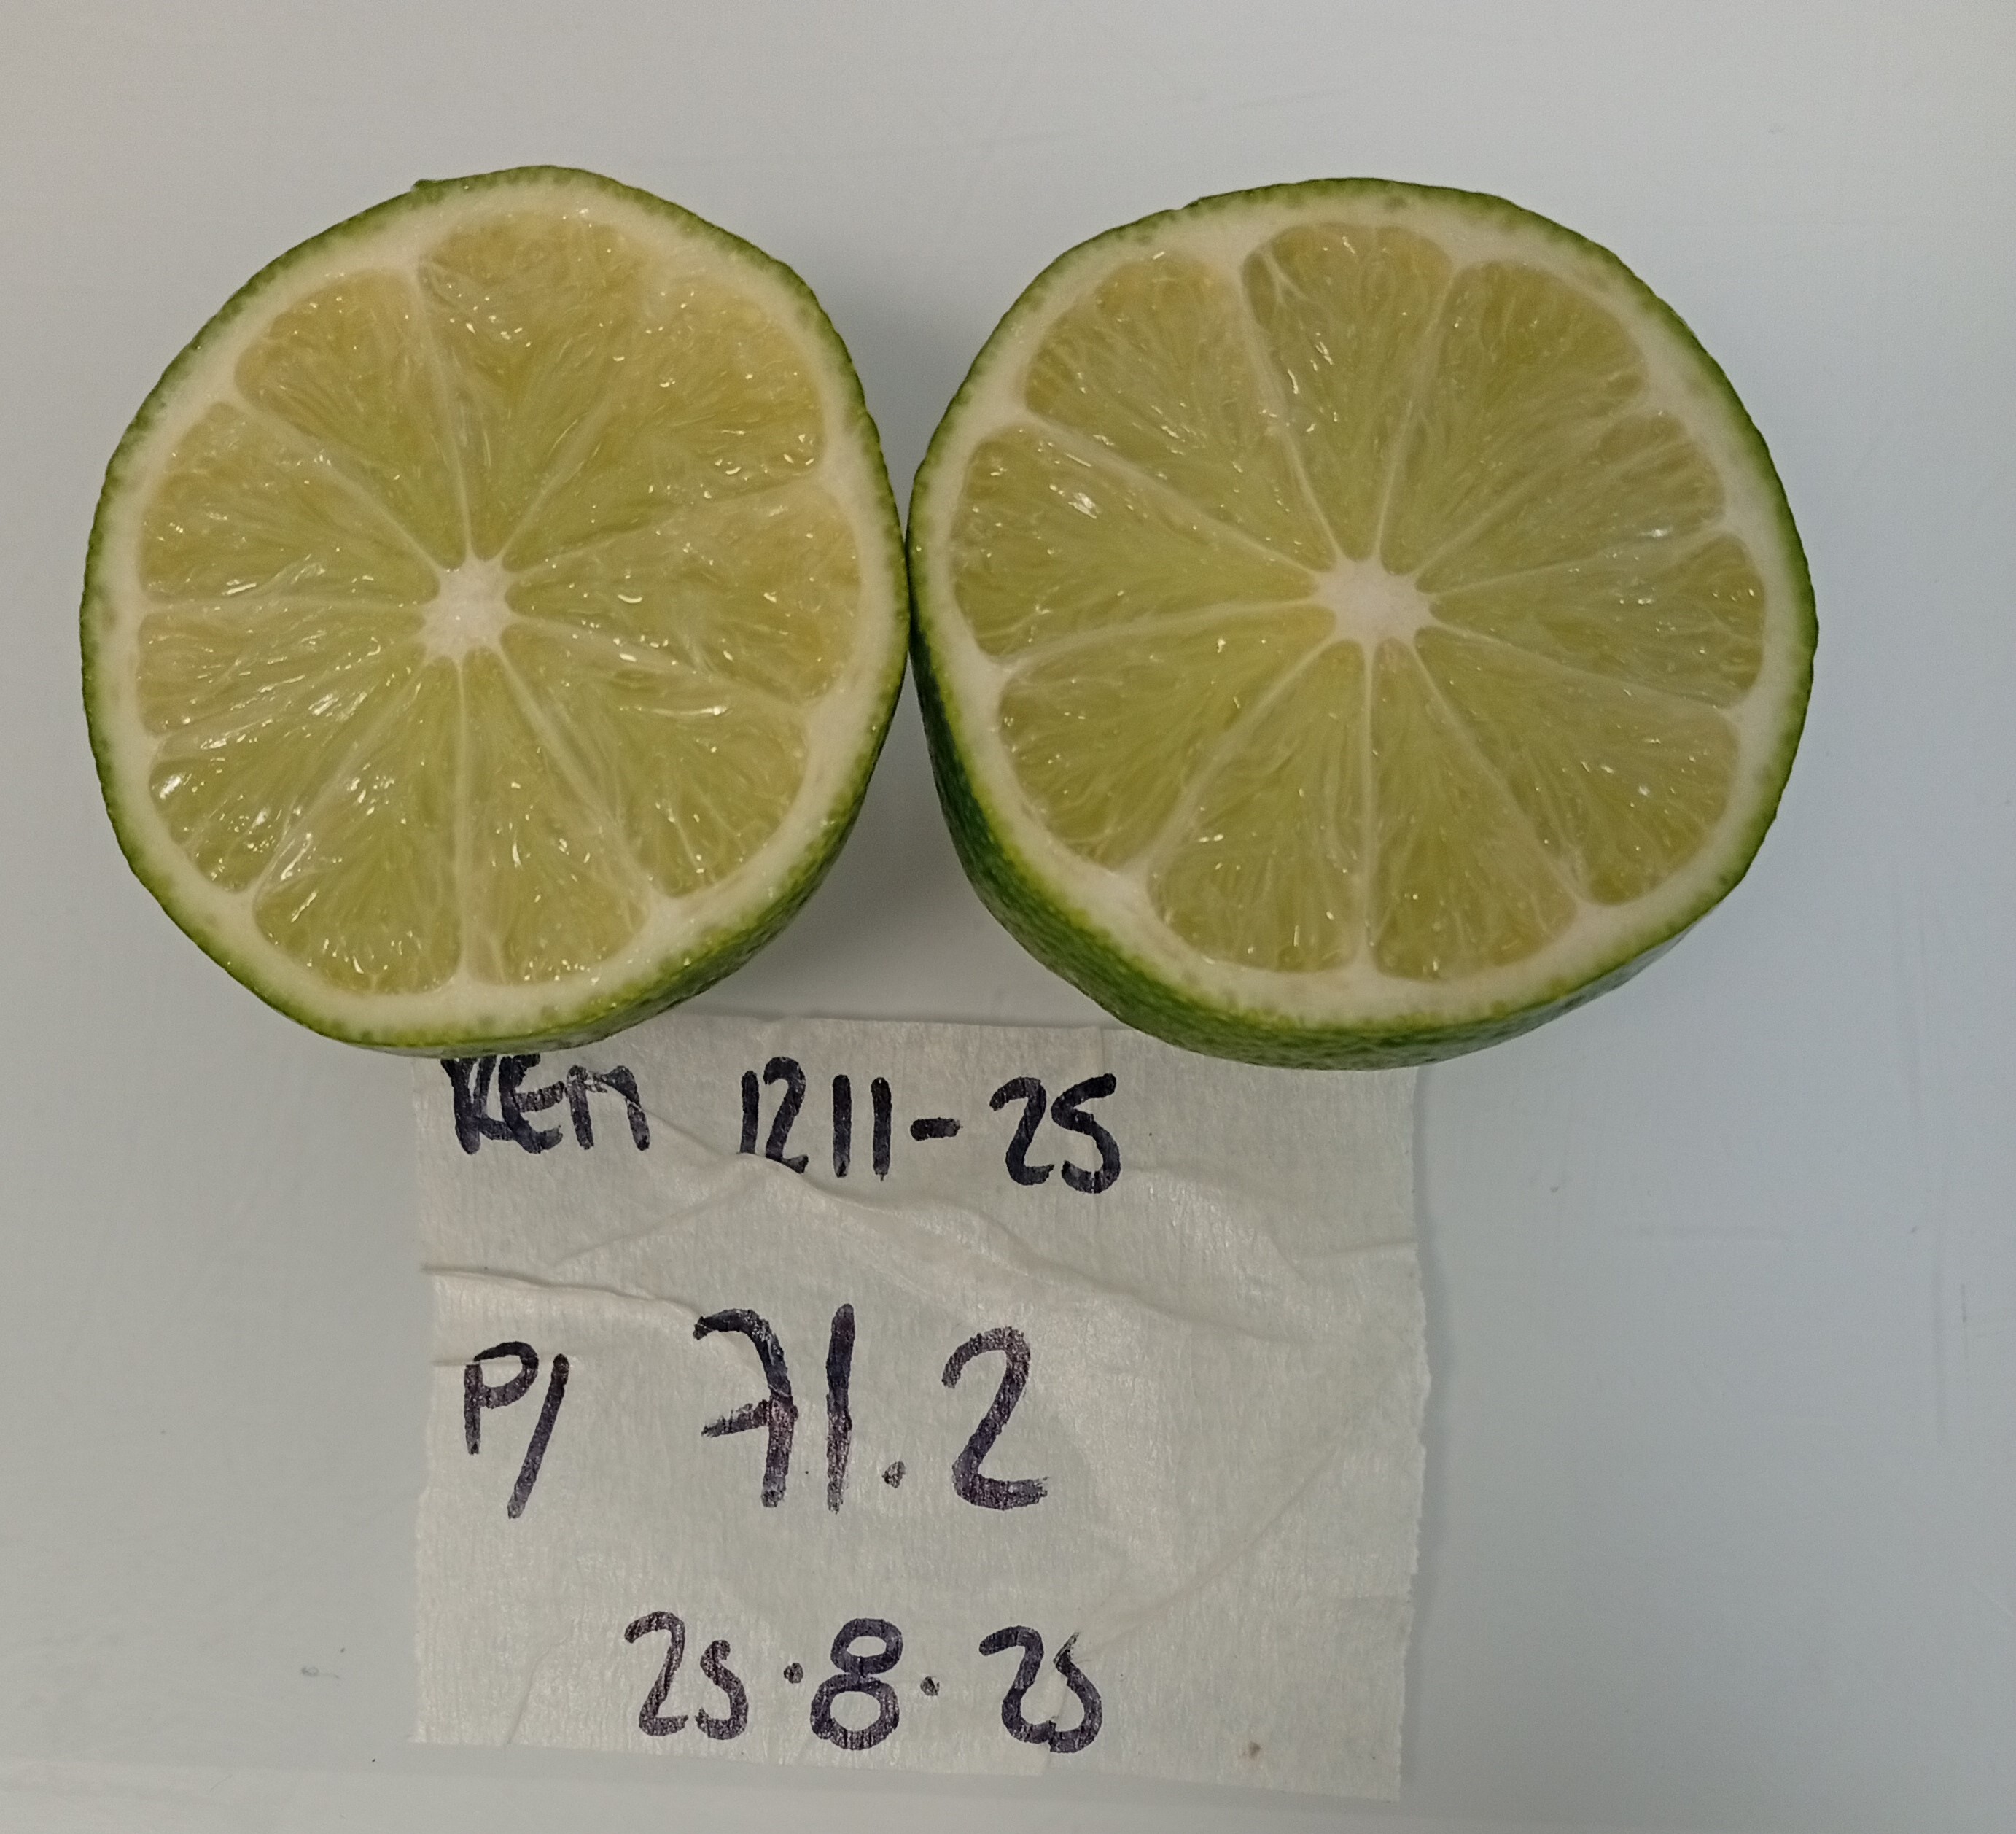 REM 1211-25
P/ 71.2
25.8.25